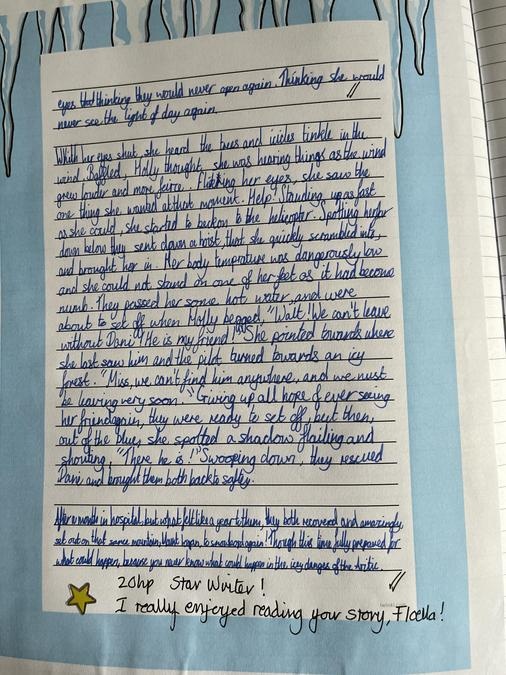 eyes thinking they would never open again. Thinking she would
never see the light of day again.
With her eyes shut, she heard the trees and icicles tinkle in the
wind. Baffled, Molly thought she was hearing things as the wind
grew louder and more fierce. her eyes, she saw the
one thing she wanted at that moment. Help! Standing up as fast
as she could, she started to beckon to the helicopter. Spotting her far
down below they sent down a hoist, that she quickly scrambled into,
and brought her in. Her body temperature was dangerously low
and she could not stand on one of her feet as it had become
numb. They passed her some hot water, and were
about to set off when Molly begged, "Wait! We can't leave
without Dani! He is my friend!" She pointed towards where
she last saw him and the pilot turned towards an icy
forest. "Miss, we can't find him anywhere, and we must
be leaving very soon." Giving up all hope of ever seeing
her friend again, they were ready to set off, but then,
out of the blue, she spotted a shadow flailing and
shouting. "There he is!" Swooping down, they rescued
Dani and brought them both back to safety.
After a month in hospital, but what felt like a year to them, they both recovered and amazingly,
set out on that same mountain, to snowboard again! Though this time fully prepared for
what could happen, because you never know what could happen in the icy dangers of the Arctic.
20hp Star Writer!
I really enjoyed reading your story, Floella!